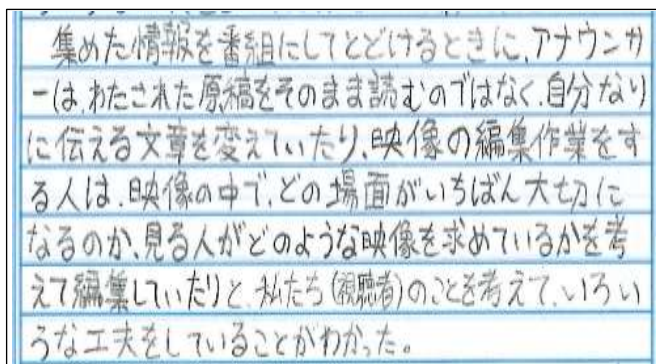 集めた情報を番組にしてとどけるときに、アナウンサ
ーは、わたされた原稿をそのまま読むのではなく、自分なり
に伝える文章を変えていたり、映像の編集作業をす
る人は、映像の中で、どの場面がいちばん大切に
なるのか、見る人がどのような映像を求めているかを考
えて編集していたりと、私たち(視聴者)のことを考えて、いろい
ろな工夫をしていることがわかった。